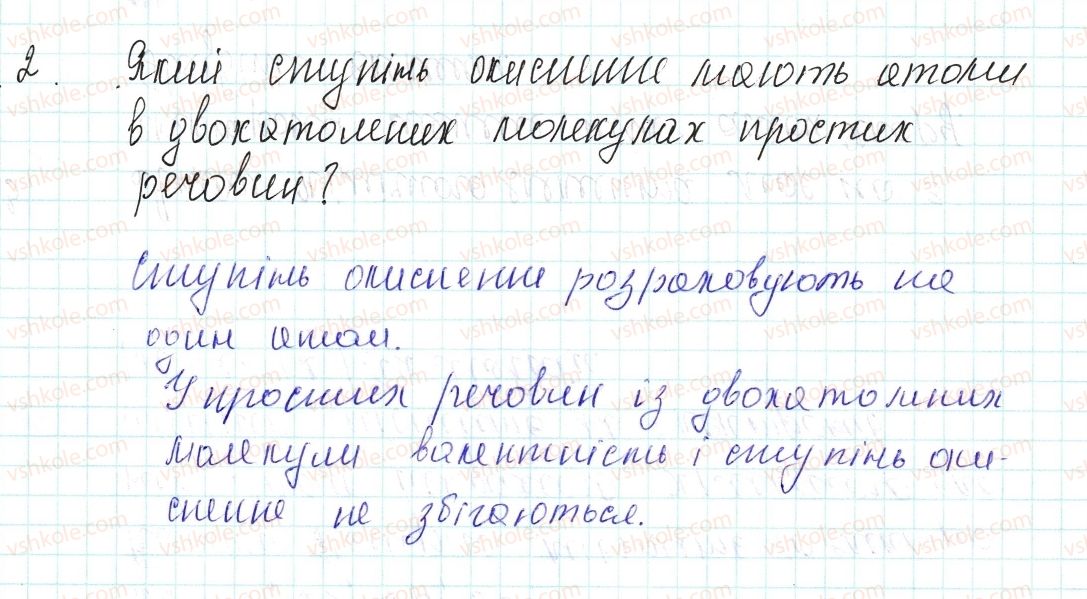 2. Який ступінь окиснення мають атоми
в двохатомних молекулах простих
речовин?
Ступінь окиснення розраховують на
один атом.
У простих речовин із двохатомних
молекули валентність і ступінь оки-
снення не збігаються.